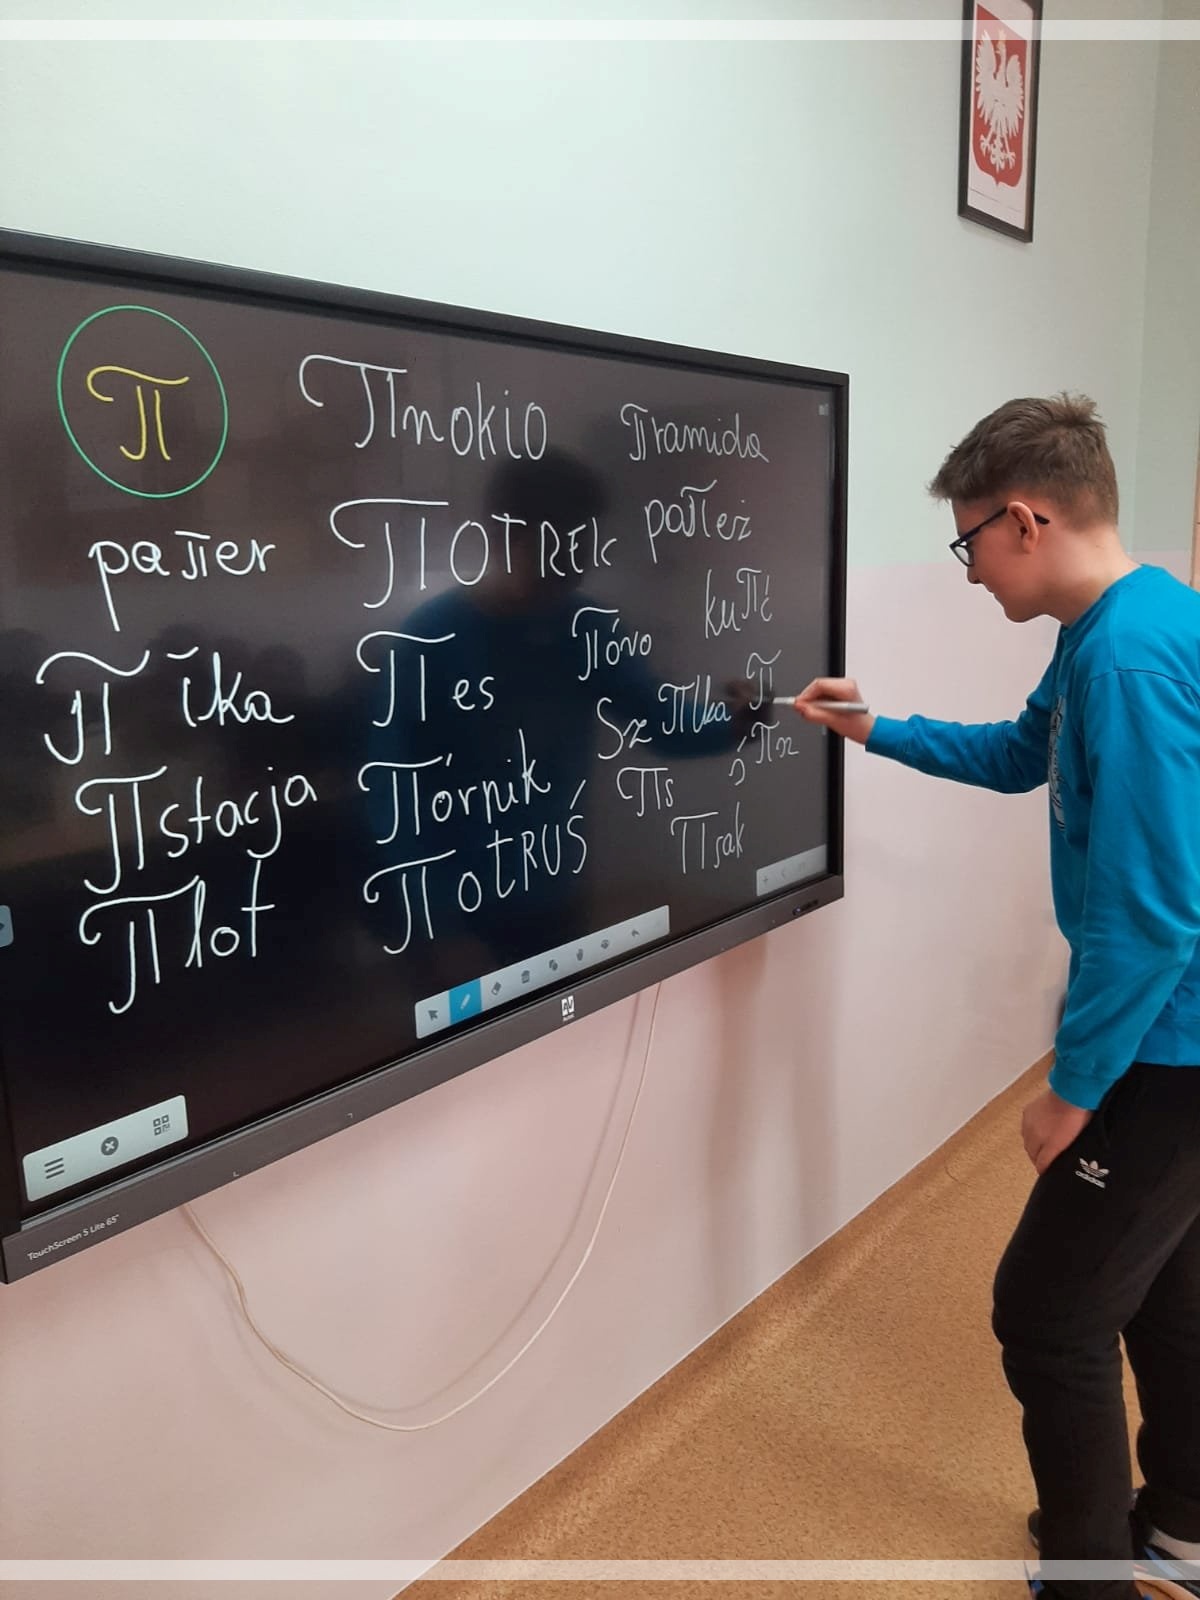 π
πnokio
πramida
paπer
πOTREK
paπeż
kuπć
π ika
πes
πóro
Szπlka
π
πstacja
πórnik
πs
śπx
πlot
πOTRUŚ
πsak
TouchScreen S Lite 65"
adidas